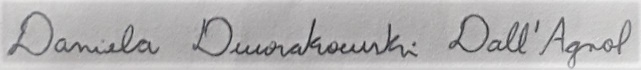 Daniela Dworakowski Dall'Agnol